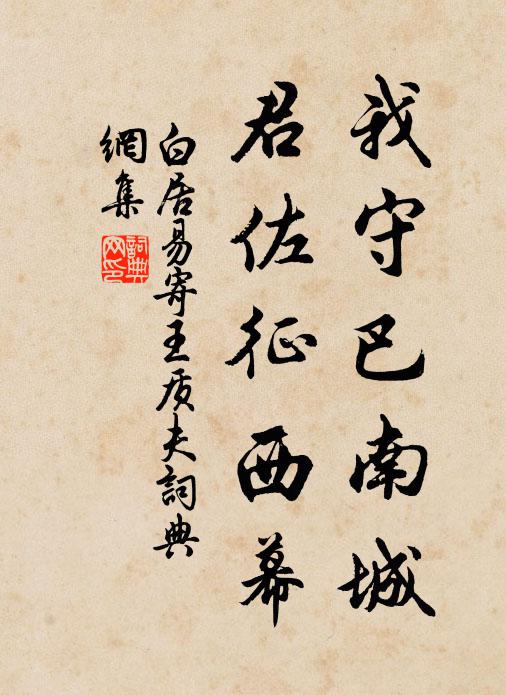 我守巴南城
君佐征西幕
白居易寄王质夫詞典
網集
詞典
网印